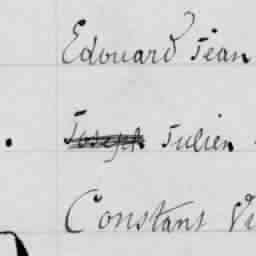 Edouard Jean
Joseph Julien
Constant Vi